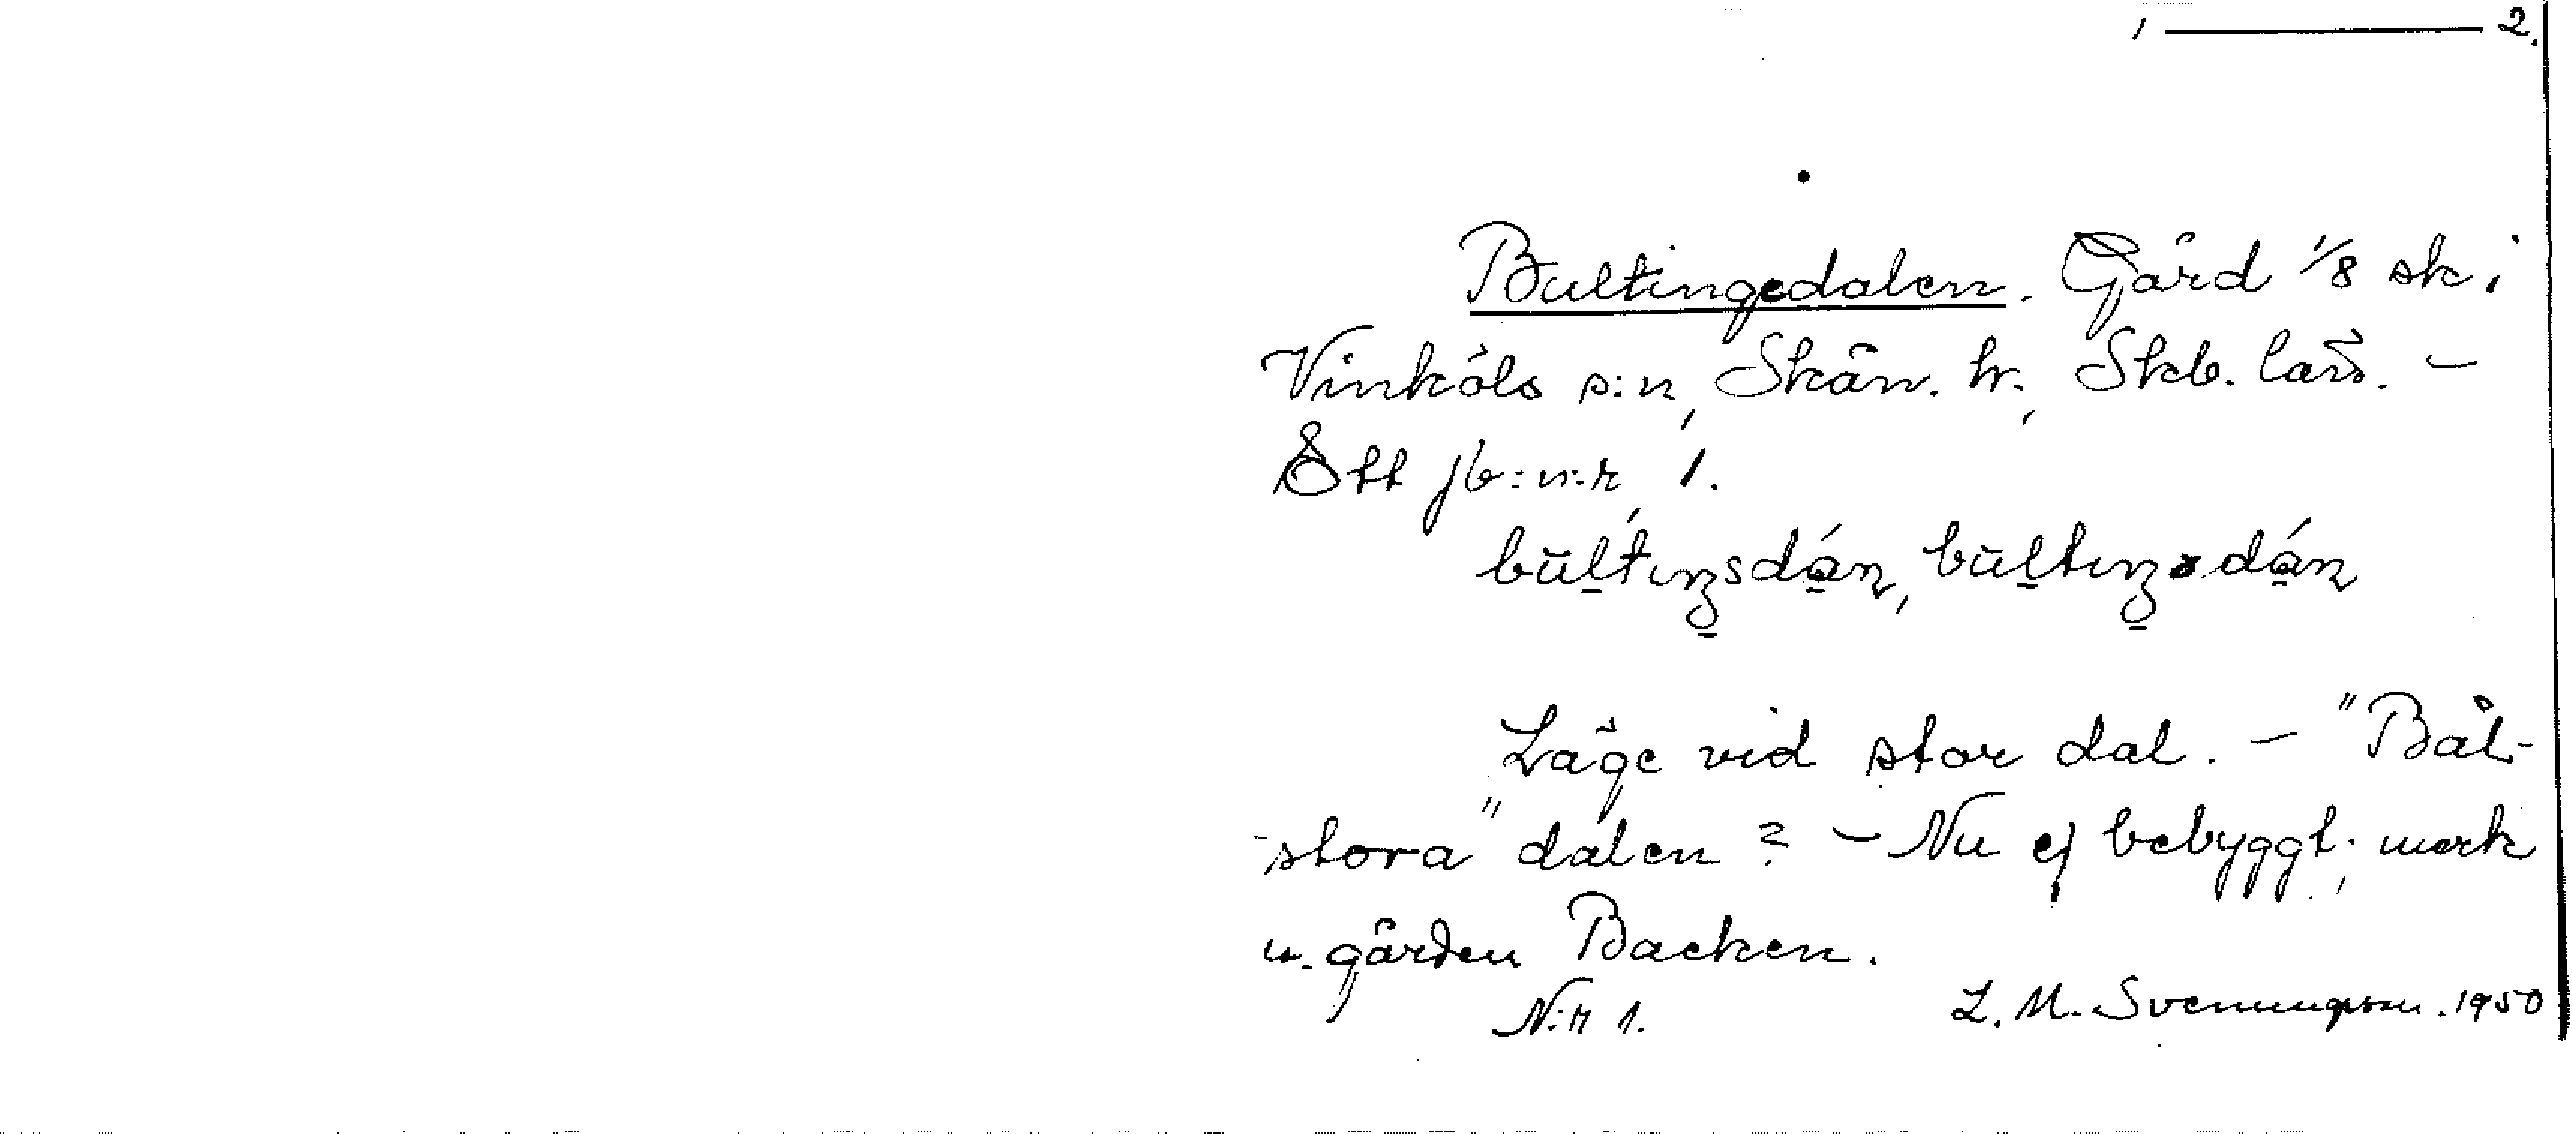 1 — 2.
Bultingedalen. Gård 1/8 sk i
Vinköls s:n, Skån. hr., Skb. län. –
Ått jb:n:r 1.
Läge vid stor dal. – "Bål-
-stora" dalen? – Nu ej bebyggt; mark
u. gården Backen.
N:r 1. L. M. Svenungsson. 1950